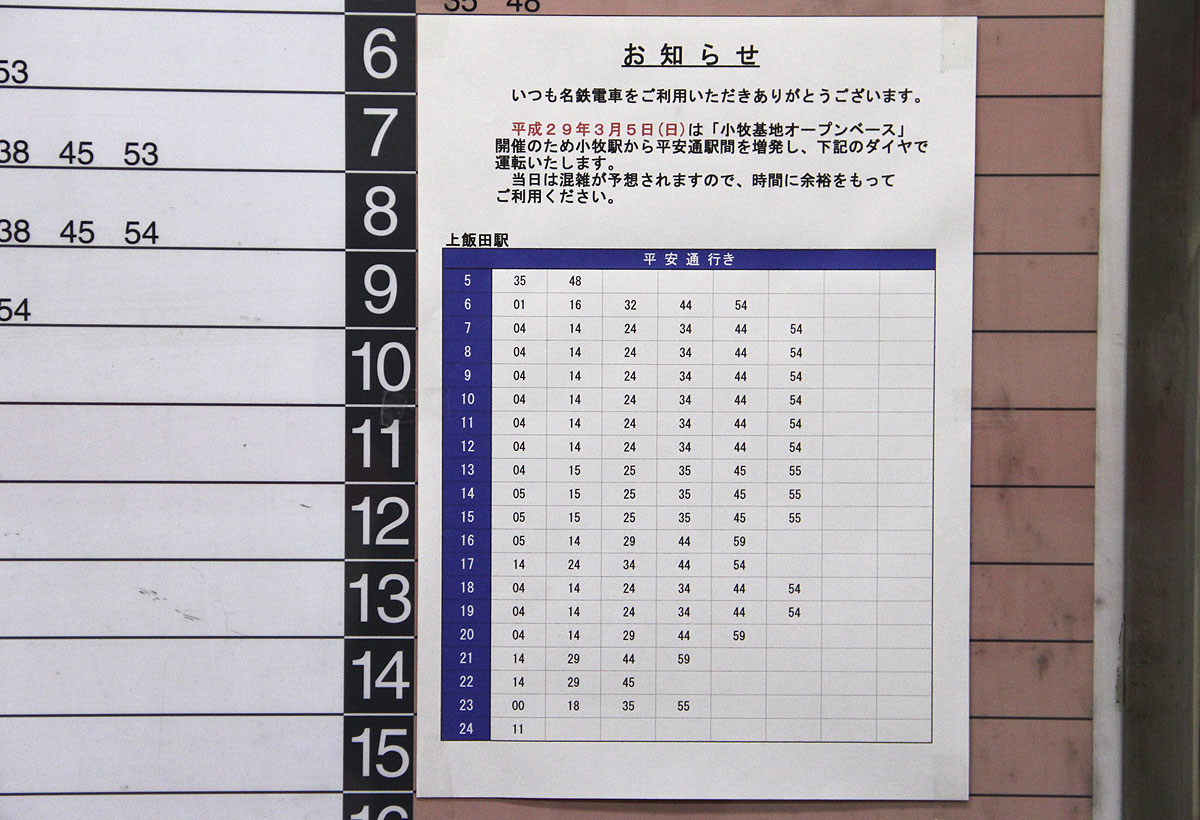 35 48
6
53
7
38 45 53
8
38 45 54
9
54
10
11
12
13
14
15
お知らせ
いつも名鉄電車をご利用いただきありがとうございます。
平成29年3月5日(日)は「小牧基地オープンベース」
開催のため小牧駅から平安通駅間を増発し、下記のダイヤで
運転いたします。
当日は混雑が予想されますので、時間に余裕をもって
ご利用ください。
上飯田駅
平安通行き
5 35 48
6 01 16 32 44 54
7 04 14 24 34 44 54
8 04 14 24 34 44 54
9 04 14 24 34 44 54
10 04 14 24 34 44 54
11 04 14 24 34 44 54
12 04 14 24 34 44 54
13 04 15 25 35 45 55
14 05 15 25 35 45 55
15 05 15 25 35 45 55
16 05 14 29 44 59
17 14 24 34 44 54
18 04 14 24 34 44 54
19 04 14 24 34 44 54
20 04 14 29 44 59
21 14 29 44 59
22 14 29 45
23 00 18 35 55
24 11